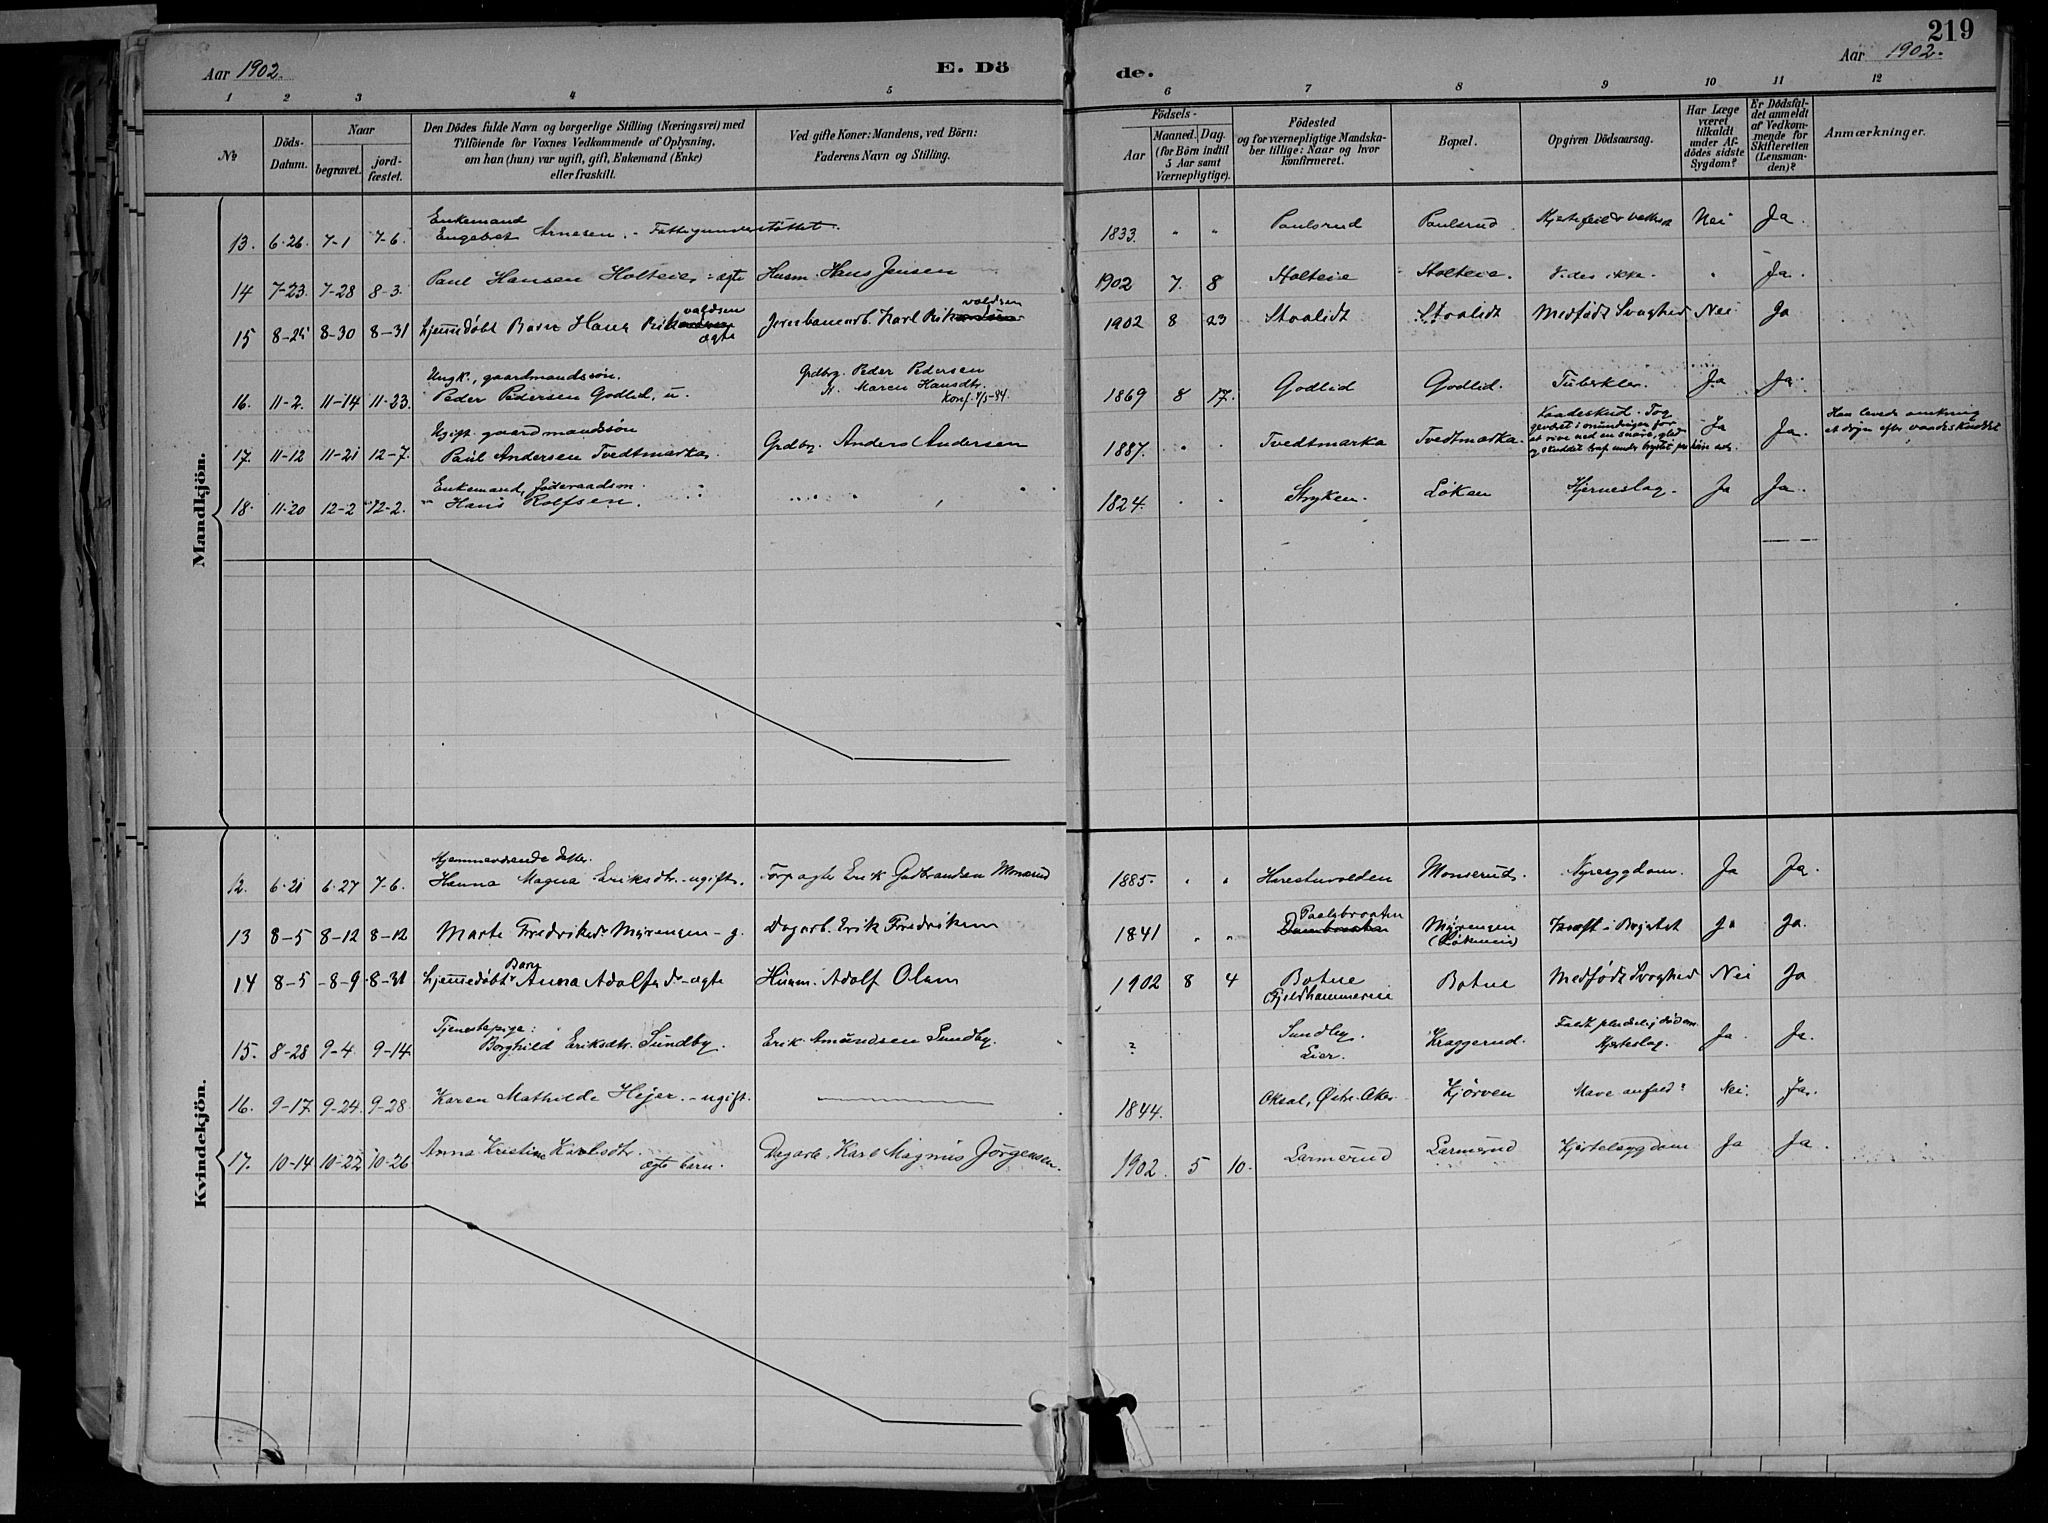 219
Aar 1902.
E. Dö
de.
Aar 1902.
1 2 3 4 5 6 7 8 9 10 11 12
№
Döds-
Datum.
Naar
begravet.
jord-
fæstet.
Den Dödes fulde Navn og borgerlige Stilling (Næringsvei) med
Tilföiende for Voxnes Vedkommende af Oplysning,
om han (hun) var ugift, gift, Enkemand (Enke)
eller fraskilt.
Ved gifte Koner: Mandens, ved Börn:
Faderens Navn og Stilling.
Födsels-
Aar
Maaned. Dag.
(for Börn indtil
5 Aar samt
Værnepligtige).
Födested
og for værnepligtige Mandska-
ber tillige: Naar og hvor
konfirmeret.
Bopæl.
Opgiven Dödsaarsag.
Har Læge
været
tilkaldt
under Af-
dödes sidste
Sygdom?
Er Dödsfal-
det anmeldt
af Vedkom-
mende for
Skifteretten
(Lensman-
den)?
Anmærkninger.
Mandkjön.
Enkemand
13. 6-26. 7-1 7-6. Engebret Arnesen. - Fattigunderstöttet. 1833. " " Paulsrud Paulsrud. Nei Ja.
14 7-23. 7-28 8-3. Paul Hansen Holteie - ægte Husm. Hans Jensen 1902 7. 8 Holteie Holteie. Vides ikke. " Ja.
valdsen valdsen
15 8-25 8-30 8-31 hjemmedøbt Barn Hans Rik Jernbanearb. Karl Rik 1902 8 23 Staalidt Staalidt Medfødt Svaghed Nei Ja
ægte
Ungk., gaardmandssön. Grdbr. Peder Pedersen
16. 11-2. 11-14 11-23. Peder Pedersen Godlid, u. Maren Hansdtr. 1869 8 17. Godlid Godlid. Tuberklos. Ja Ja.
Konf. 4/5-84.
Ugift gaardmandssön
17. 11-12 11-21 12-7. Paul Andersen Tvedtmarka. Grdbr. Anders Andersen 1887. " " Tvedtmarka Tvedtmarka. Vaadeskud. Tog
geværet i mundingen for
at rive ned en snare, gled
og skuddet traf under brystet Ja Ja. Han levede omkring
et døgn efter vaadeskuddet
Enkemand, föderaadsm.
18. 11-20 12-2 12-2. Hans Rolfsen. 1824. " " Stryken. Løken Hjerneslag. Ja Ja.
Kvindekjön.
Hjemmeværende datter.
12. 6-21 6-27 7-6. Hanna Magna Eriksdtr. - ugift. Forpagter Erik Gudbrandsen Monserud 1885. " " Harestuvolden Monserud. Nyresygdom. Ja Ja.
Paalsbraaten
13 8-5 8-12 8-12 Marte Fredriksdr Myrengen - g. Dagarb. Erik Fredriksen 1841 " " Myrengen Kræft i Brystet Ja Ja.
Barn
14 8-5 8-9 8-31 hjemmedøbt Anna Adolfsdr - ægte Husm. Adolf Olsen 1902 8 4 Botne Botne Medfødt Svaghed Nei Ja
Tjenestepige:
15. 8-28 9-4 9-14 Borghild Eriksdtr. Sundby. Erik Amundsen Sundby. ? Sundby
Lier. Kraggerud. Faldt pludselig död om.
Hjerteslag. Ja Ja.
16. 9-17 9-24. 9-28. Karen Mathilde Hejer. - ugift. 1844. Oksal, Østre Aker. Kjørven Mave anfald? Nei. Ja.
17. 10-14 10-22 10-26 Anna Kristine Karlsdtr. Dagarb. Karl Magnus Jörgensen. 1902. 5 10. Larmerud Larmerud Kjertelsygdom Ja Ja.
ægte barn.